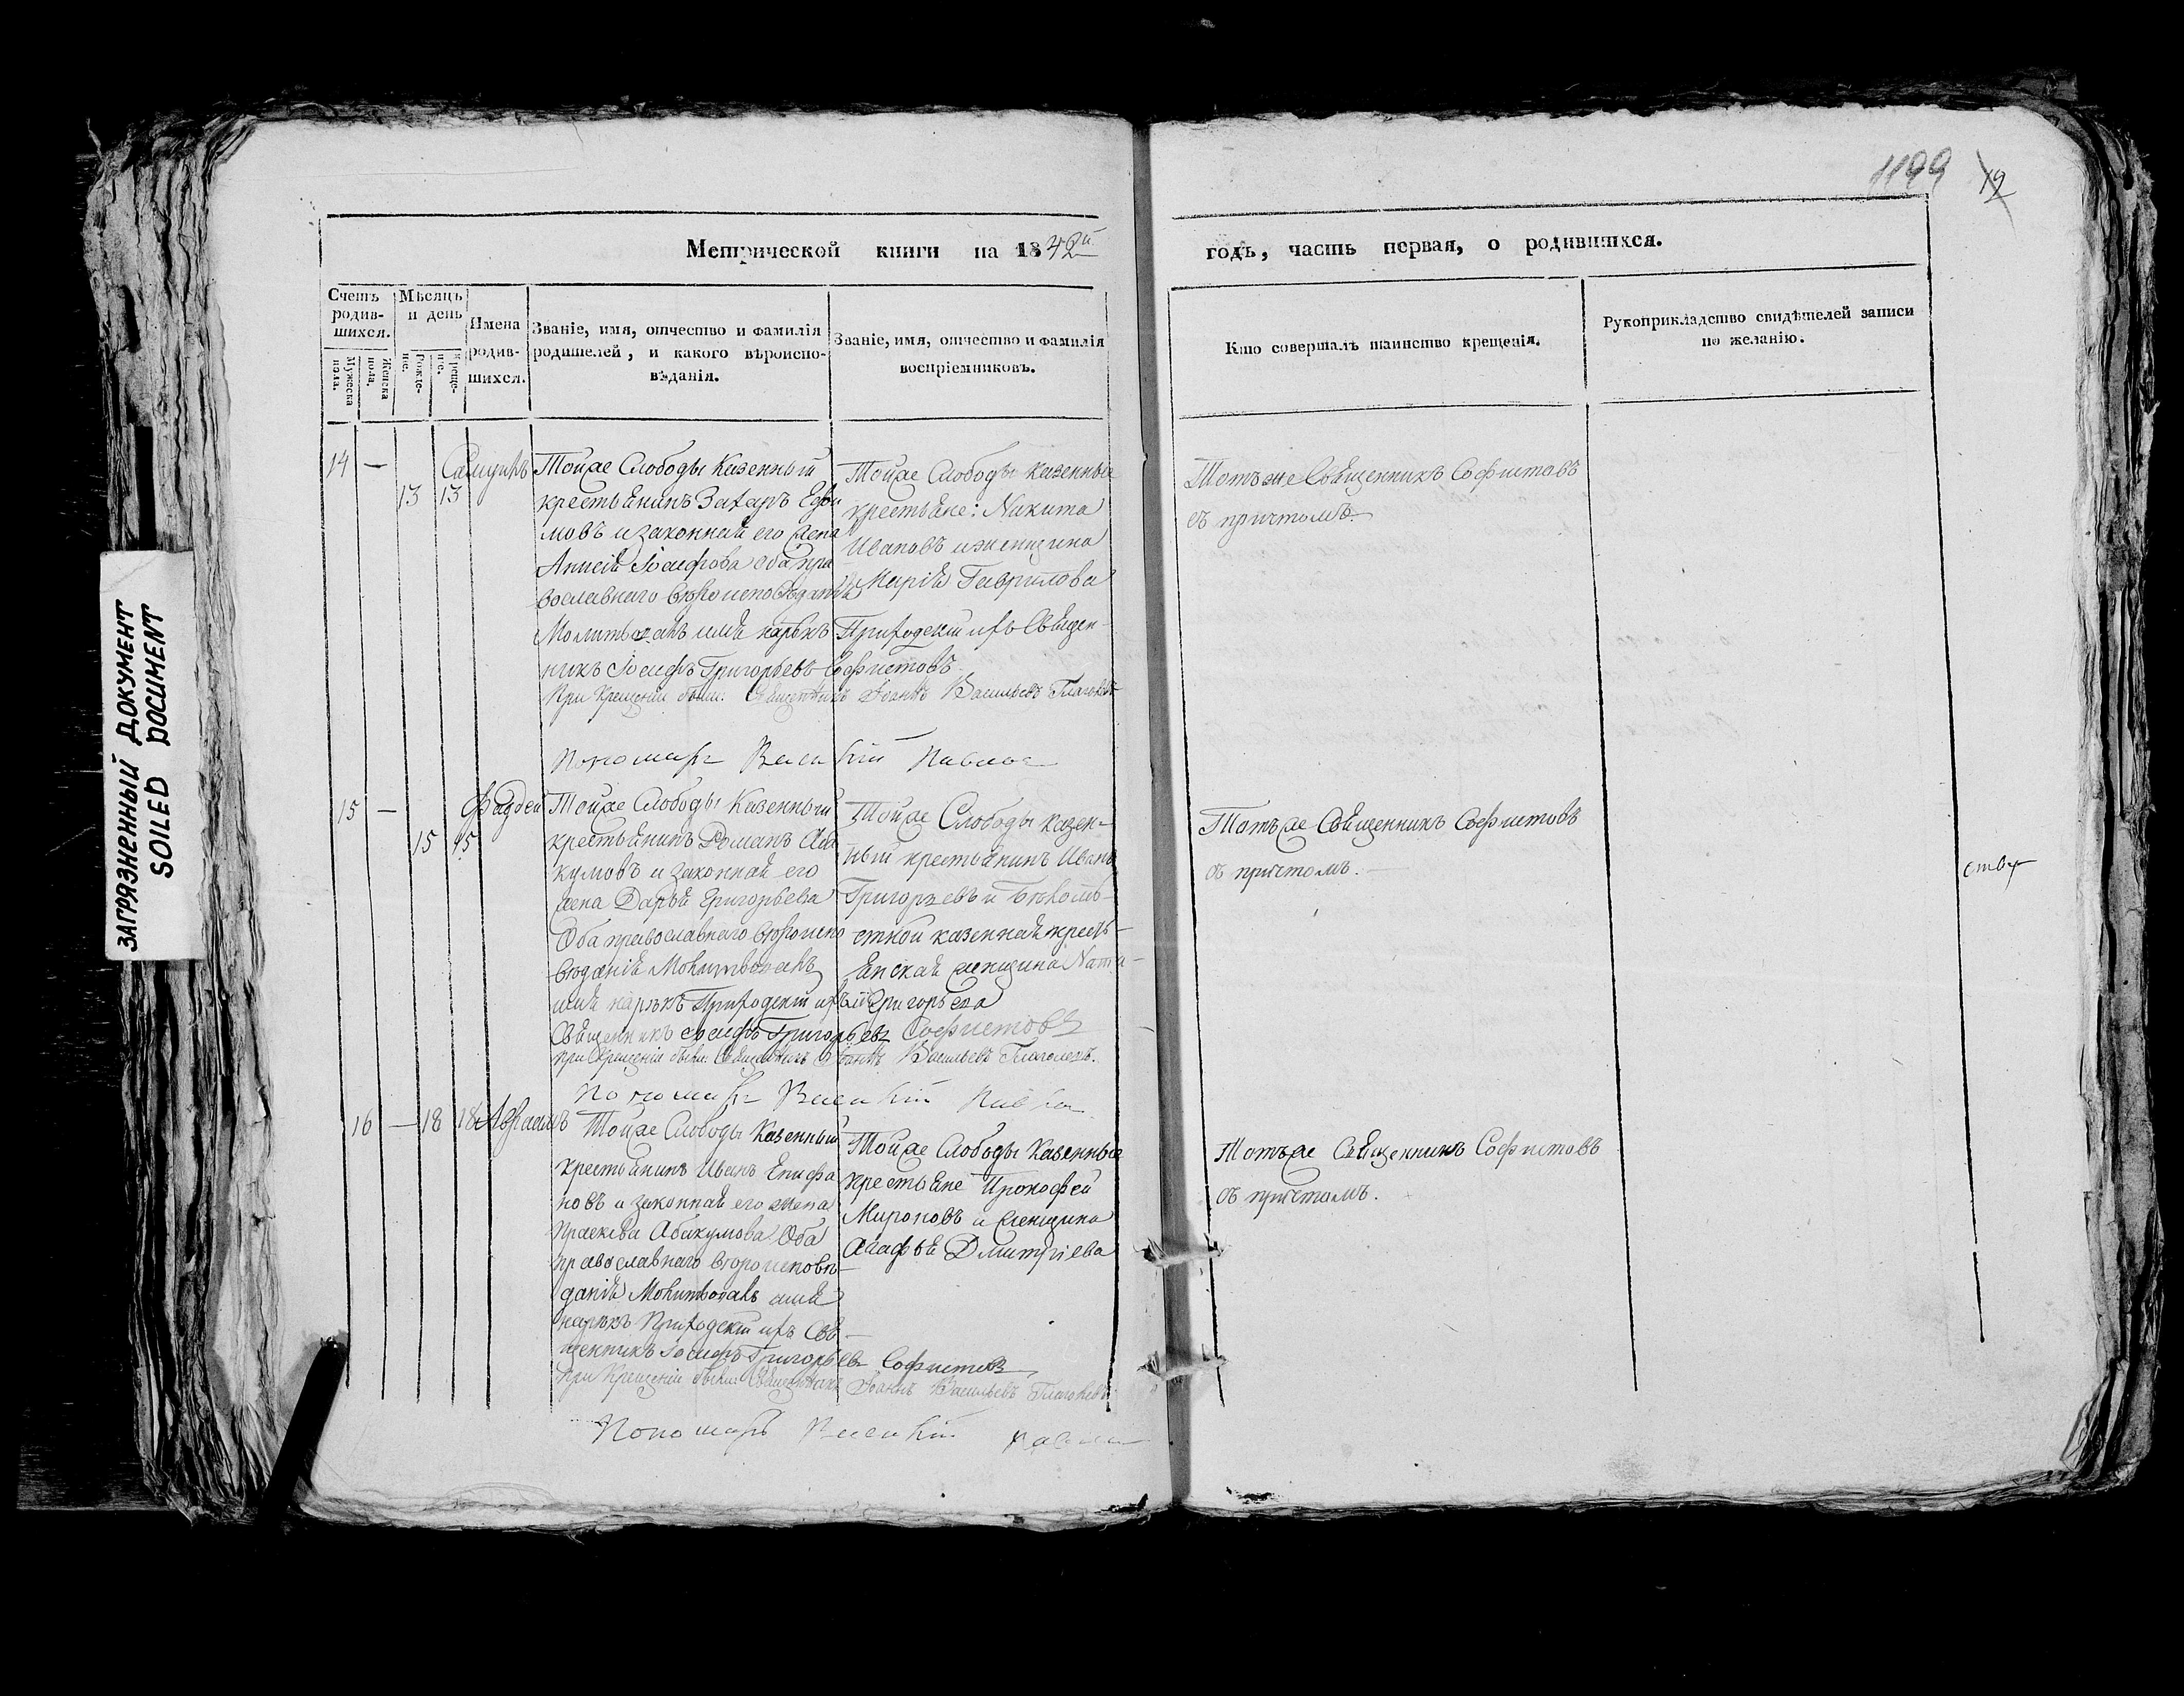 1199 19
Метрической книги на 1842й
годъ, часть первая, о родившихся.
Счетъ родив-шихся.
Мужеска пола.
Женска пола.
Мѣсяцъ и день
Рожде-ніе.
Креще-ніе.
Имена родив-шихся.
Званіе, имя, отчество и фамилія родителей, и какого вѣроиспо-вѣданія.
Званіе, имя, отчество и фамилія воспріемниковъ.
Кто совершалъ таинство крещенія.
Рукоприкладство свидѣтелей записи по желанію.
14 — 13 13
Тойже Слободы Казенный
крестьянинъ Захаръ Ефи
мовъ и законная его жена
Анисія Іосифова оба пра
вославнаго вѣроисповѣданія
Молитвовалъ имя нарѣкъ Приходскій ихъ Священ-
никъ Іосифъ Григорьевъ Софистовъ
При Крещеніи были: Священникъ Іоаннъ Васильевъ Глаголевъ
Пономарь Василій Павлов
Тойже Слободы казенные
крестьяне: Никита
Ивановъ и женщина
Марія Гаврилова
Тотъже Священникъ Софистовъ
съ причтомъ.
15 — 15 15 Фаддей
Тойже Слободы Казенный
крестьянинъ Романъ Аба
кумовъ и законная его
жена Дарья Григорьева
Оба православнаго вѣроиспо
вѣданія Молитвовалъ
имя нарѣкъ Приходскій ихъ
Священникъ Іосифъ Григорьевъ Софистовъ
при Крещеніи были: Священникъ Іоаннъ Васильевъ Глаголевъ.
Пономарь Василій Павлов
Тойже Слободы казен-
ный крестьянинъ Иванъ
Григорьевъ и
казенная кресть-
янская женщина
Григорьева
Тотъже Священникъ Софистовъ
съ причтомъ.
16 — 18 18 Авраамъ
Тойже Слободы Казенный
крестьянинъ Иванъ Епифа
новъ и законная его жена
Праскева Абакумова Оба
православнаго вѣроисповѣ-
данія Молитвовалъ имя
нарѣкъ Приходскій ихъ Свя-
щенникъ Іосифъ Григорьевъ Софистовъ
при Крещеніи были: Священникъ Іоаннъ Васильевъ Глаголевъ
Пономарь Василій Павлов
Тойже Слободы Казенные
крестьяне Прокофей
Мироновъ и женщина
Агафья Дмитріева
Тотъже Священникъ Софистовъ
съ причтомъ.
ЗАГРЯЗНЕННЫЙ ДОКУМЕНТ
SOILED DOCUMENT